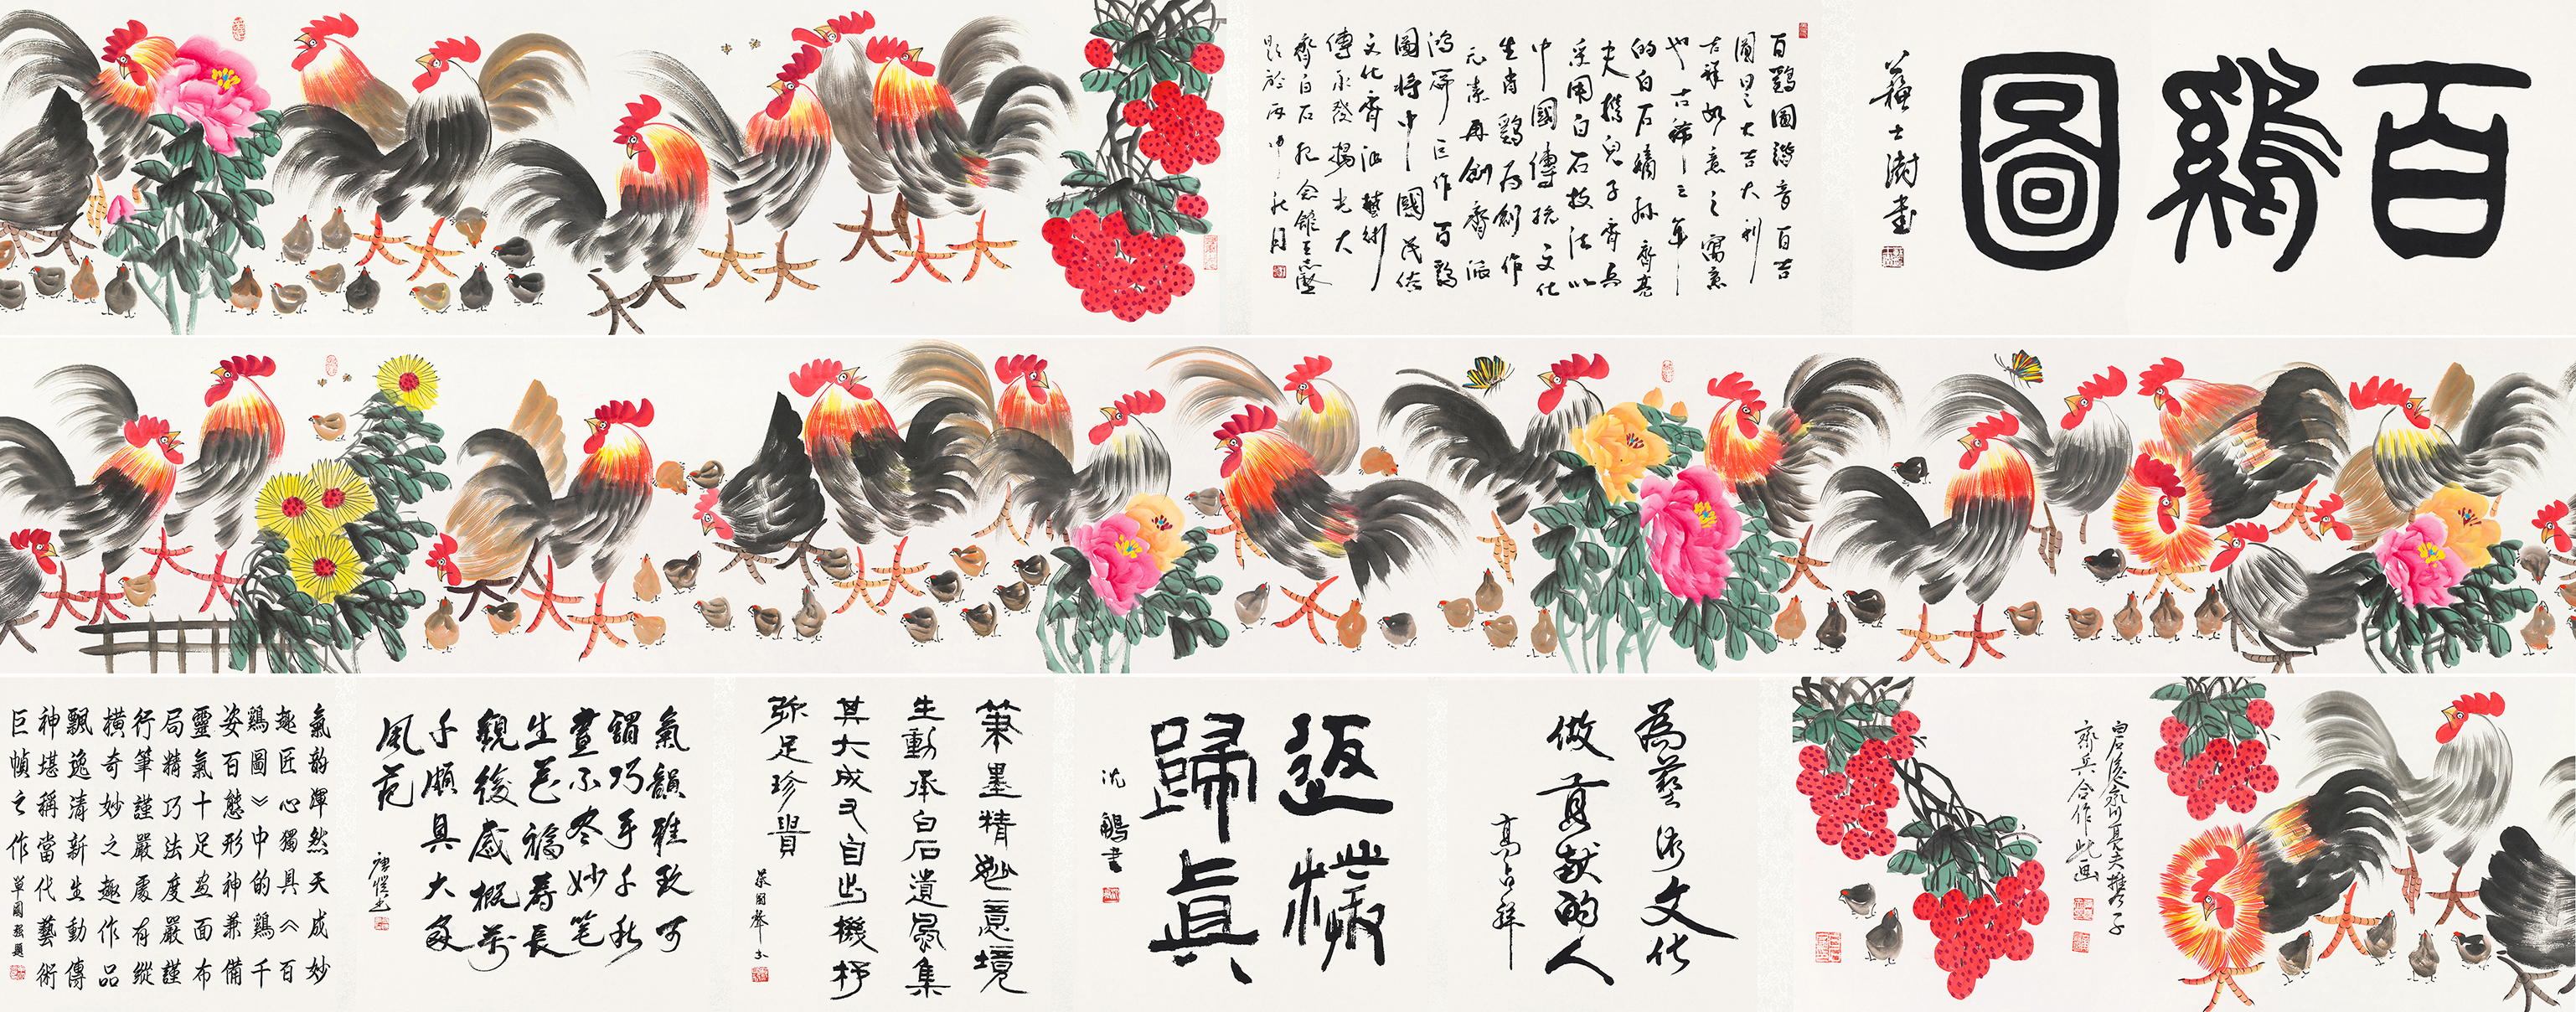 百鷄圖
蘇士澍書
百鷄圖諧音百吉
圖曰之大吉大利
吉祥如意之寓意
也古稀之年
的白石嫡孫齊亮
夫攜兒子齊兵
采用白石技法以
中國傳統文化
生肖鷄為創作
元素再創齊派
鴻篇巨作百鷄
圖將中國民俗
文化齊派藝術
傳承發揚光大
齊白石紀念館
題於丙申秋月
白石後裔齊亮夫攜子
齊兵合作此画
為藝術文化
做貢献的人
高占祥
返樸
歸真
沈鵬書
筆墨精妙意境
生動承白石遺風集
其大成又自出機杼
弥足珍貴
氣韻雅致可
謂巧手千秋
畫不冬妙笔
生花福壽長
觀後感概萬
千頗具大家
風范
唐愷書
氣韵渾然天成妙
趣匠心獨具《百
鷄圖》中的鷄千
姿百態形神兼備
靈氣十足畫面布
局精巧法度嚴謹
行筆謹嚴處有縱
橫奇妙之趣作品
飄逸清新生動傳
神堪稱當代藝術
巨幀之作
單國強題